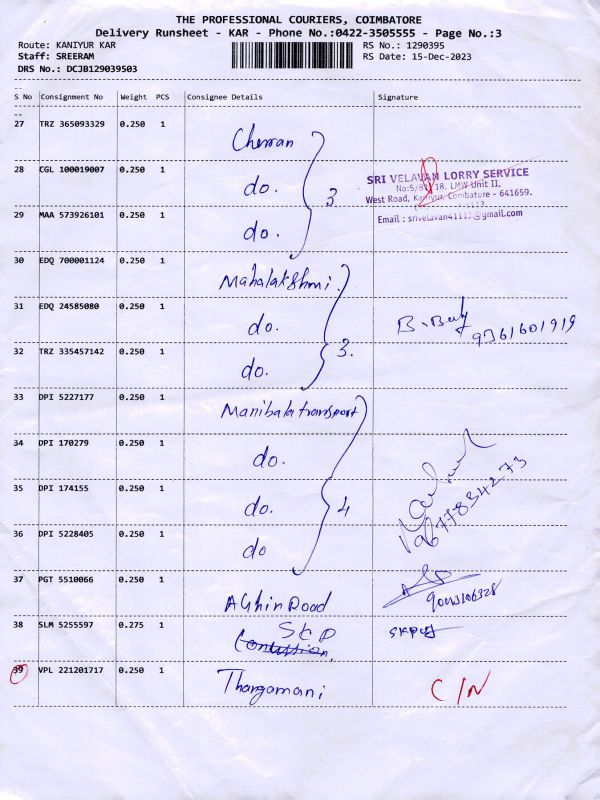 THE PROFESSIONAL COURIERS, COIMBATORE
Delivery Runsheet - KAR - Phone No.:0422-3505555 - Page No.:3
Route: KANIYUR KAR RS No.: 1290395
Staff: SREERAM RS Date: 15-Dec-2023
DRS No.: DCJB129039503
--
S No Consignment No Weight PCS Consignee Details Signature
--
27 TRZ 365093329 0.250 1 Cherran
28 CGL 100019007 0.250 1 do. 3
SRI VELAVAN LORRY SERVICE
No:5/ 18, LMW Unit II,
West Road, Kaniyur, Coimbatore - 641659.
29 MAA 573926101 0.250 1 do.
Email : @gmail.com
30 EDQ 700001124 0.250 1 Mahalakshmi.
31 EDQ 24585080 0.250 1 do. B. 9361601919
32 TRZ 335457142 0.250 1 do. 3.
33 DPI 5227177 0.250 1 Manibala transport
34 DPI 170279 0.250 1 do.
35 DPI 174155 0.250 1 do. 4
36 DPI 5228405 0.250 1 do
37 PGT 5510066 0.250 1 Road
38 SLM 5255597 0.275 1 SKP
39 VPL 221201717 0.250 1 Thangamani C/N